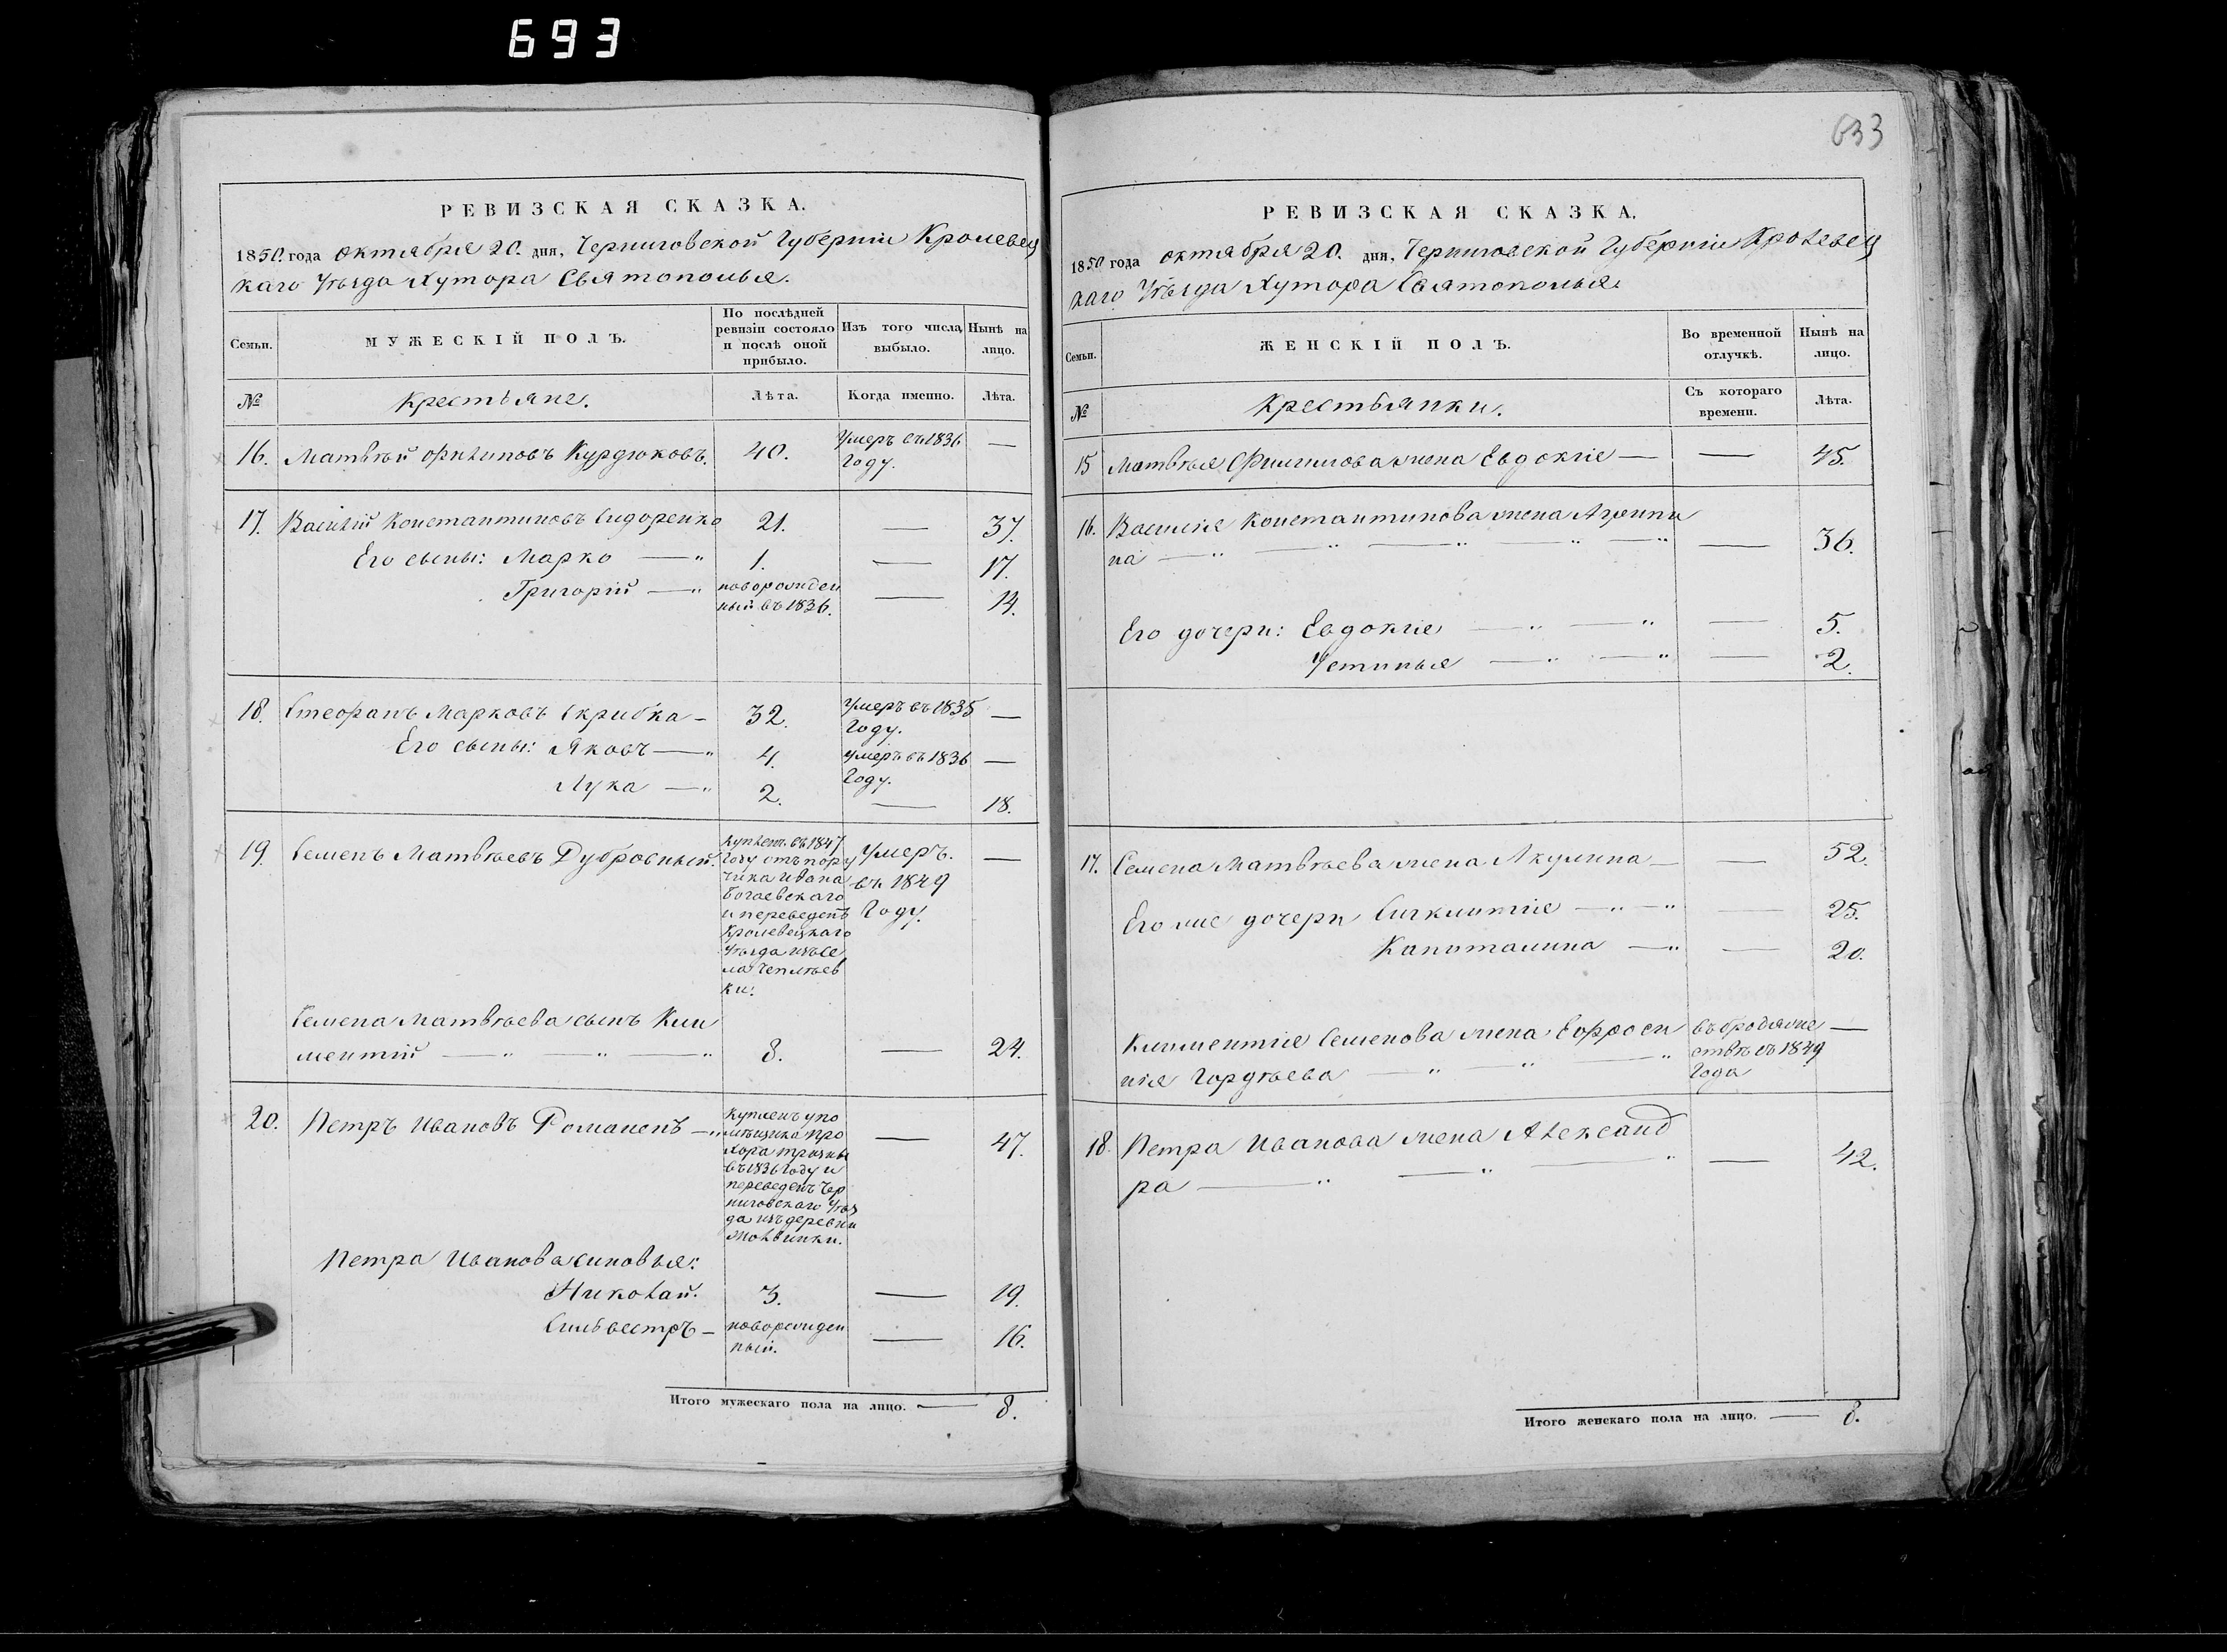 693
633
РЕВИЗСКАЯ СКАЗКА.
1850. года октября 20. дня, Черниговской Губерніи Кролевец
каго Уѣзда Хутора Святополья.
Семьи.
МУЖЕСКІЙ ПОЛЪ.
По послѣдней
ревизіи состояло
и послѣ оной
прибыло.
Изъ того числа
выбыло.
Нынѣ на
лицо.
№
Крестьяне.
Лѣта.
Когда именно.
Лѣта.
16. Матвѣй Филиповъ Курдюковъ. 40. Умеръ въ 1836 —
Году.
17. Василій Константиновъ Сидоренко 21. — 37.
Его сыны: Марко — " 1. — 17.
Григорій — " новорожден — 14.
ный въ 1836.
18. Стефанъ Марковъ Скрибка — 32. Умеръ въ 1835 —
Году.
Его сыны: Яковъ — " 4. Умеръ въ 1836 —
Году.
Лука — " 2. — 18.
19. Семенъ Матвѣевъ Дубровный. Купленъ въ 1847 Умеръ. —
Году отъ пору
чика Ивана въ 1849
Богаевскаго
и переведенъ Году.
Кролевецкаго
Уѣзда изъ се
ла Чеплѣев
ки.
Семена Матвѣева сынъ Кли
ментій — " " — " 8. — 24.
20. Петръ Ивановъ Романенъ — " Купленъ у по — 47.
мѣщика Про
хора Тризны
въ 1836 Году и
переведенъ Чер
ниговскаго Уѣз
да изъ деревни
Молвинки.
Петра Иванова синовья:
Николай. 3. — 19.
Сильвестръ — новорожден — 16.
ный.
Итого мужескаго пола на лицо. — 8.
РЕВИЗСКАЯ СКАЗКА.
1850 года октября 20. дня, Черниговской Губерніи Кролевец
каго Уѣзда Хутора Святополья.
Семьи.
ЖЕНСКІЙ ПОЛЪ.
Во временной
отлучкѣ.
Нынѣ на
лицо.
№
Крестьянки.
Съ котораго
времени.
Лѣта.
15 Матвѣя Филипова жена Евдокія — — 45.
16. Василія Константинова жена Агрипи
на — " — " — " — " — " — 36.
Его дочери: Евдокія — " — " — 5.
Устинья — " — " — 2.
17. Семена Матвѣева жена Акулина — — 52.
Его же дочери Сигклитія — " — " — 25.
Капиталина — " — 20.
Климентія Семенова жена Ефроси въ бродяже —
нія Гордѣева — " — " — " ствѣ съ 1849
Года
18. Петра Иванова жена Александ
ра — " — " — " — 42.
Итого женскаго пола на лицо. — 8.